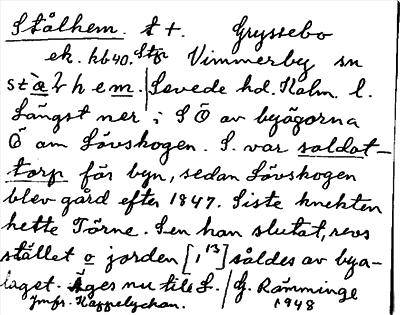 Stålhem. t +. Gryssebo
ek. kb 40. Stp Vimmerby sn
stålhem. Sevede hd. Kalm. l.
Längst ner i S Ö av byägorna
Ö om Lövskogen. S. var soldat-
torp för byn, sedan Lövskogen
blev gård efter 1847. Siste knekten
hette Törne. Sen han slutat, revs
stället o jorden [, 13] såldes av bya-
laget. Äges nu till L. / G. Rämminge
Jmfr. Kappelyckan. 1948